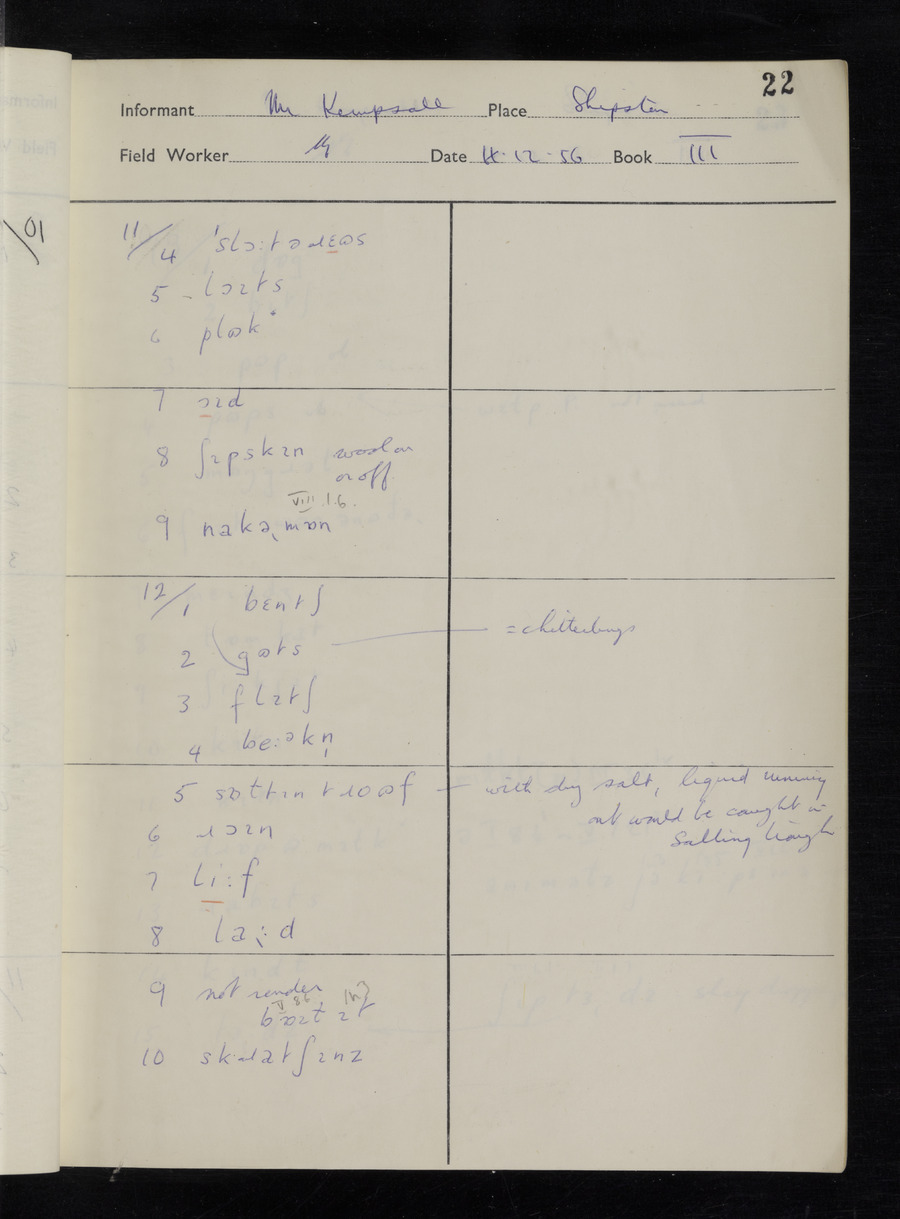 22
Informant Mr Kempsall Place Skipston
Field Worker Date 14.12.56 Book III
11/4 ˈslɔ:təɹɛɷs
5 lɔɪts
6 plɷk
7 ɔɪd
8 ʃɪpskɪn wool on
or off
VIII.1.6.
9 nakəˌmɒn
12/1 bɛntʃ
2 gɷts = chitterlings
3 flɪtʃ
4 be:əkn̩
5 sɒttɪn tɹɷɷf — with dry salt, liquid running
out would be caught in
salting trough
6 ɹɔɪn
7 li:f
8 la:d
9 not render
V 8.6
bɒɪt ɪt
10 skɹatʃɪnz
10